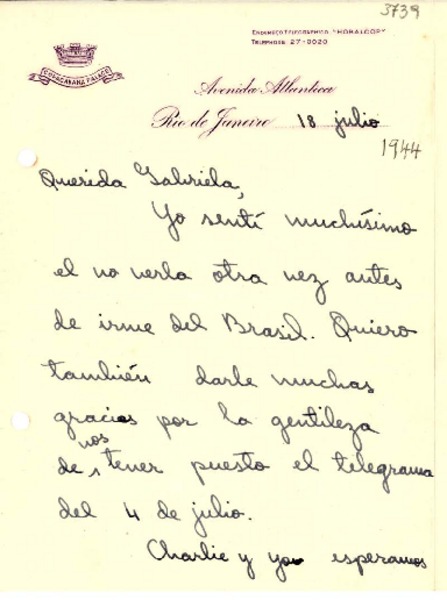 3739
ENDEREÇO TELEGRAPHICO "HORALCOP"
TELEPHONE 27-0020
COPACABANA PALACE
Avenida Atlantica
Rio de Janeiro 18 julio
1944
Querida Gabriela,
Yo sentí muchísimo
el no verla otra vez antes
de irme del Brasil. Quiero
también darle muchas
gracias por la gentileza
nos
de tener puesto el telegrama
del 4 de julio.
Charlie y yo esperamos